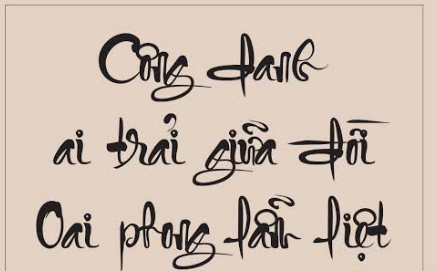 Công danh
ai trải giữa đời
Oai phong lẫm liệt